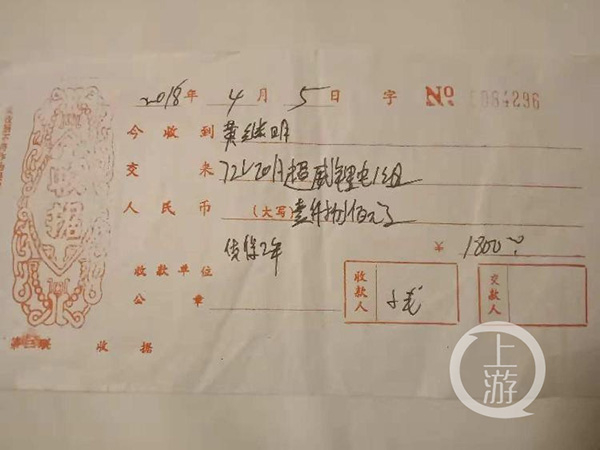 2018年 4 月 5 日 字 No 1084296
今收到 黄继明
交来 72V20A超威锂电1组
人民币 (大写) 壹仟捌佰元了
质保2年 ¥ 1800
收款单位 收款人 交款人
公章
第三联 收据
收据
上游